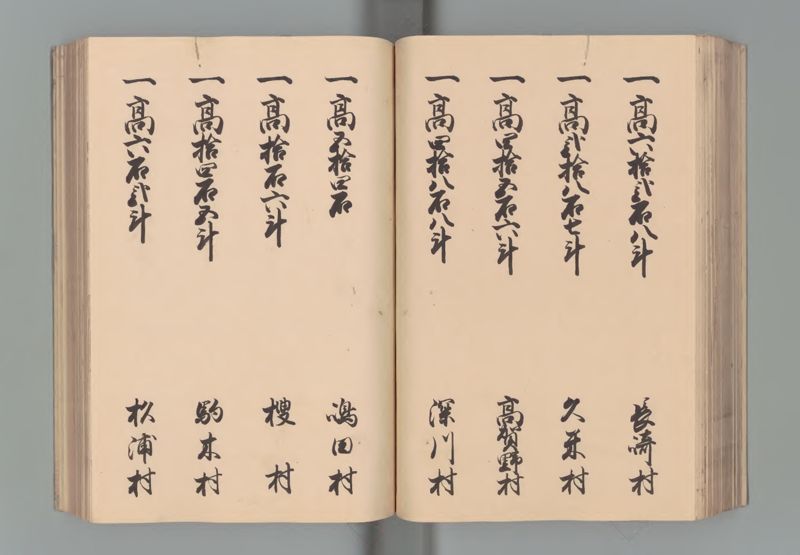 一高六拾弐石八斗 長崎村
一高弐拾八石七斗 久米村
一高四拾五石六斗 高賀野村
一高四拾八石八斗 深川村
一高五拾四石 嶋田村
一高拾石六斗 榎村
一高拾四石五斗 駒木村
一高六石弐斗 松浦村